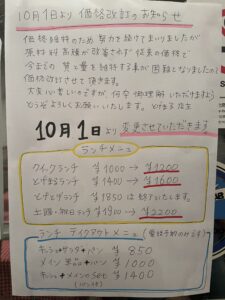 10月1日より 価格改訂のお知らせ
価格維持のため 努力を続けてまいりましたが
原材料高騰が改善されず 従来の価格で
今までの 質と量を維持する事が困難となりましたので
価格改訂させて頂きます。
大変心苦しいのですが、何卒御理解いただけますよう
どうぞよろしくお願いいたします。
10月1日より 変更させていただきます
ランチメニュー
クイックランチ ¥1000 → ¥1200
とげまるランチ ¥1400 → ¥1600
とげとげランチ ¥1850 は終了いたします。
土曜・祝日ランチ ¥1900 → ¥2200
ランチ テイクアウトメニュー (電話予約のみです)
キッシュ+サラダ+パン ¥850
メイン ¥1000
キッシュ+メインのSet ¥1400